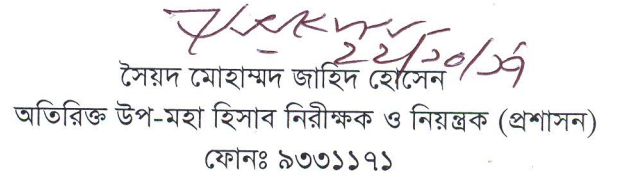 ২২/১০/১৭
সৈয়দ মোহাম্মদ জাহিদ হোসেন
অতিরিক্ত উপ-মহা হিসাব নিরীক্ষক ও নিয়ন্ত্রক (প্রশাসন)
ফোনঃ ৯৩৩১১৭১